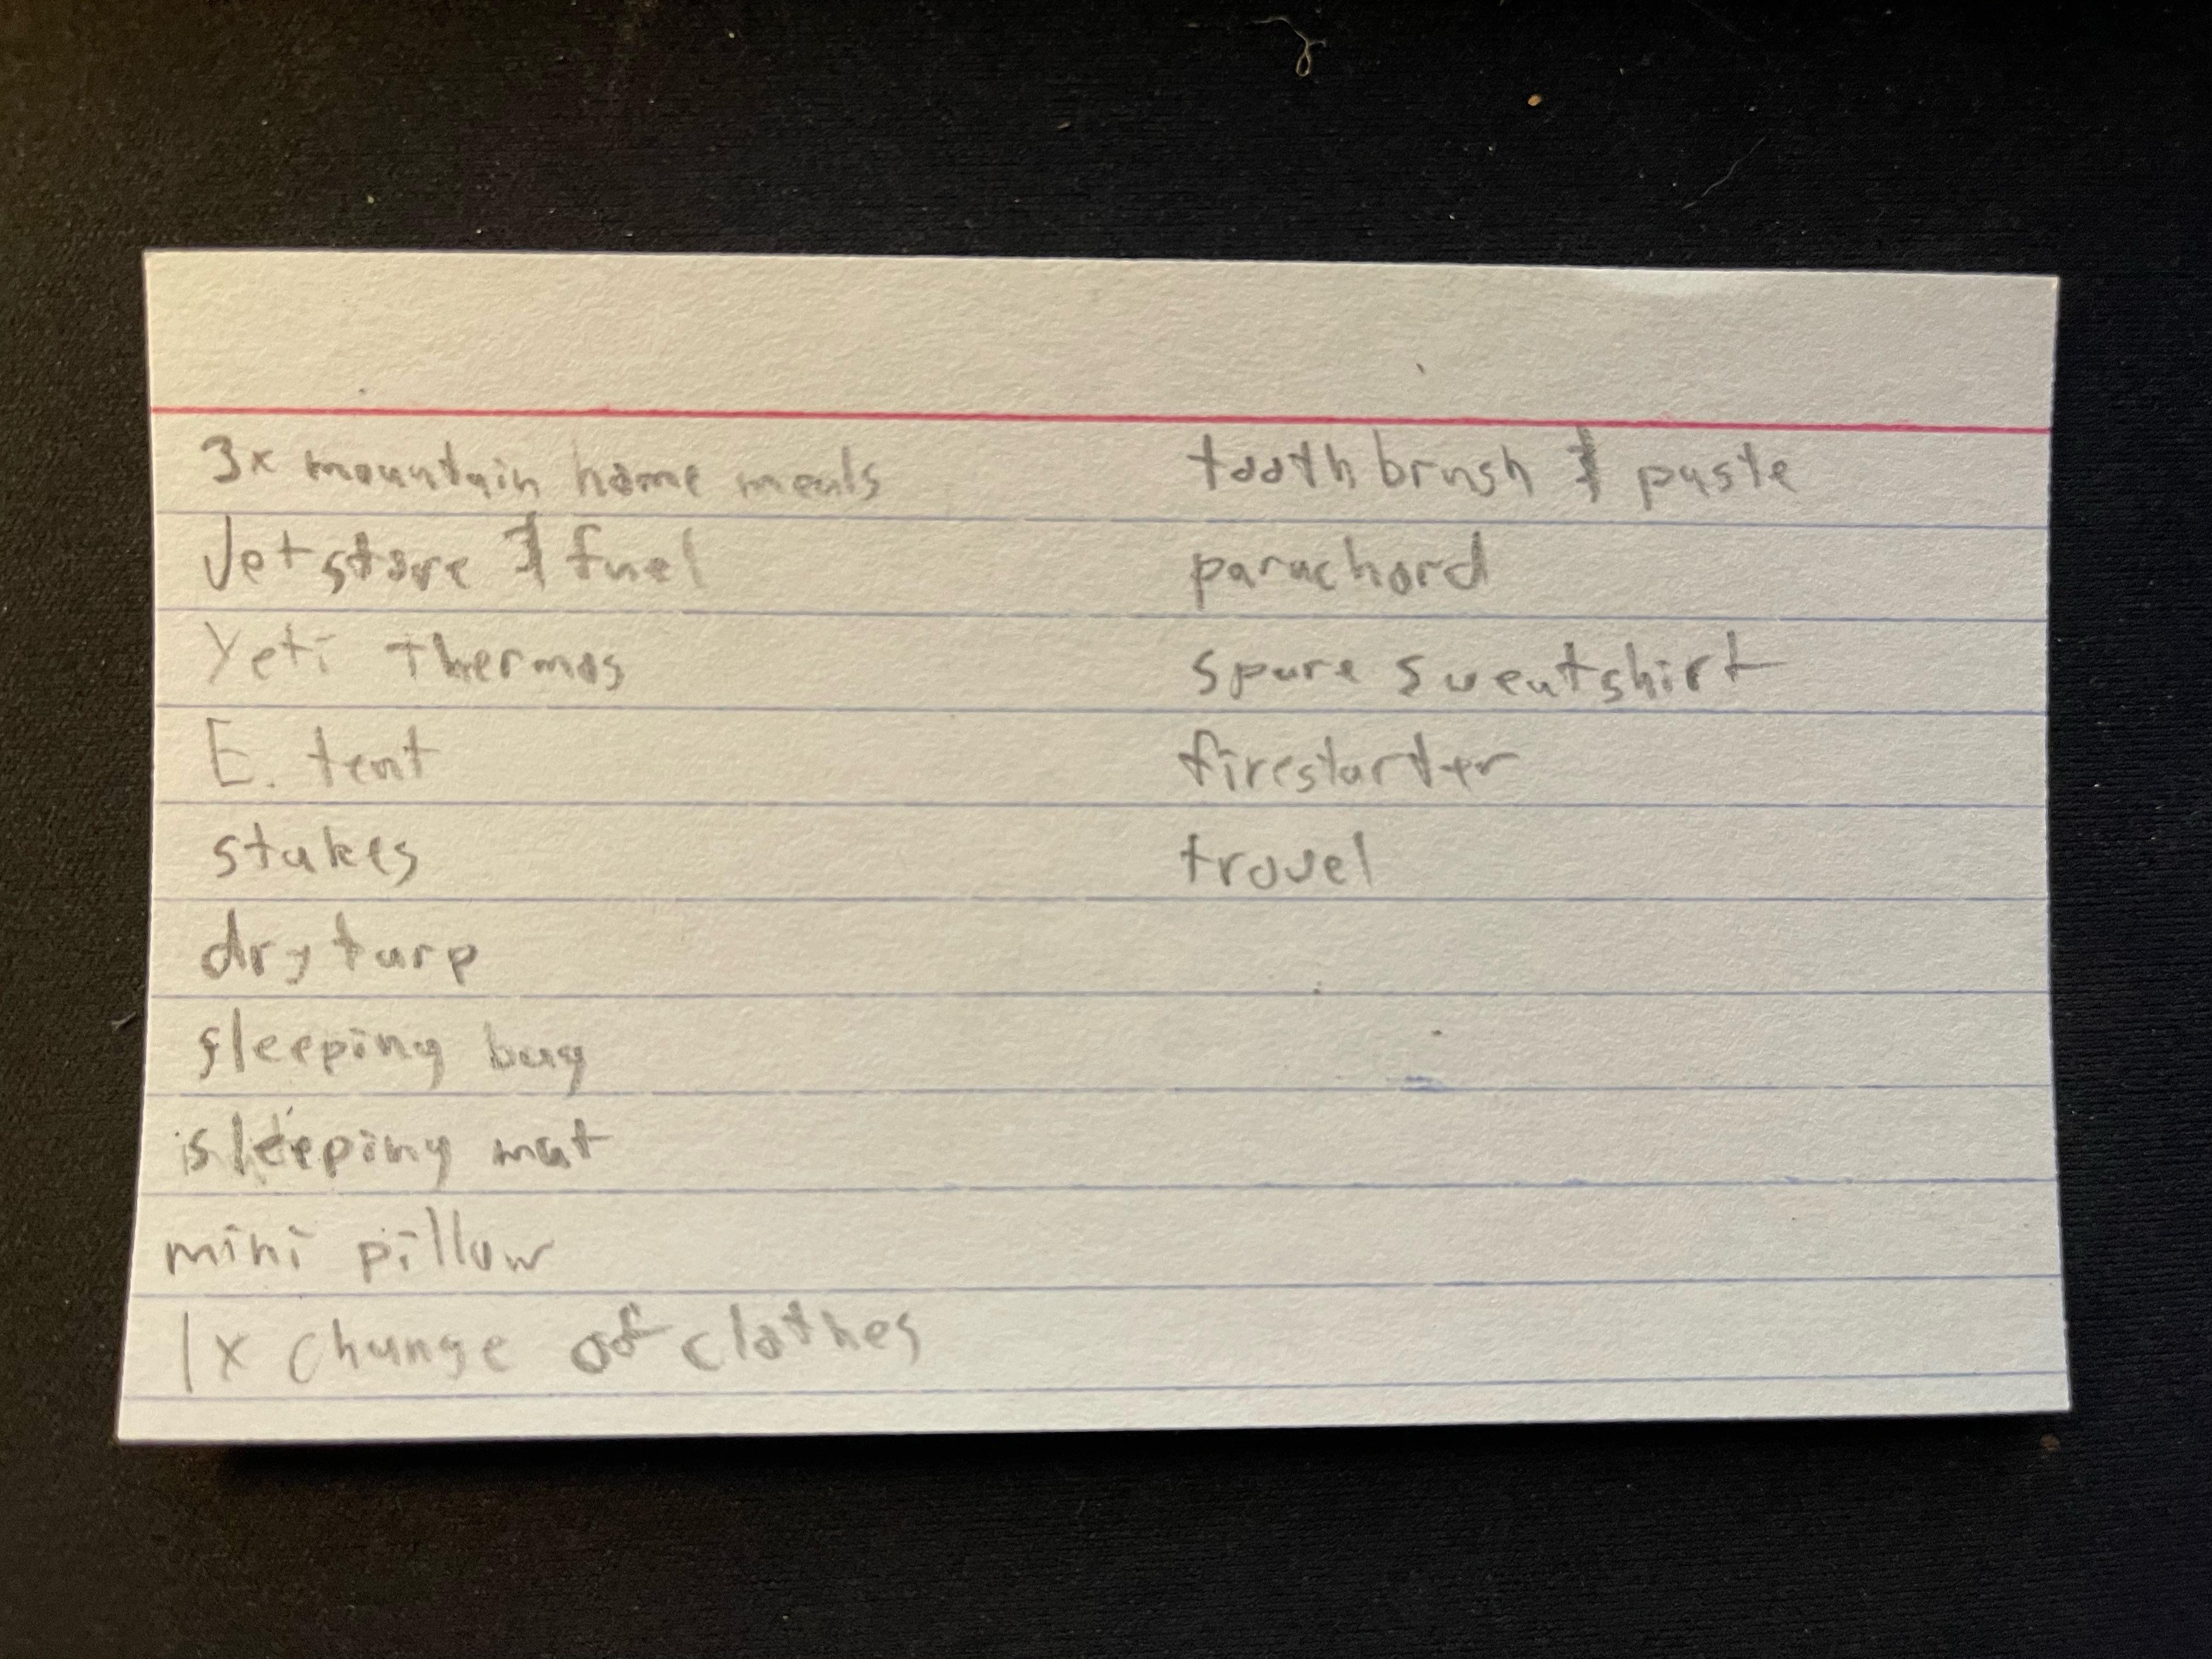 3x mountain home meals
Jetstove & fuel
Yeti Thermos
E. tent
stakes
dry tarp
sleeping bag
sleeping mat
mini pillow
1x change of clothes
toothbrush & paste
parachord
spare sweatshirt
firestarter
trovel